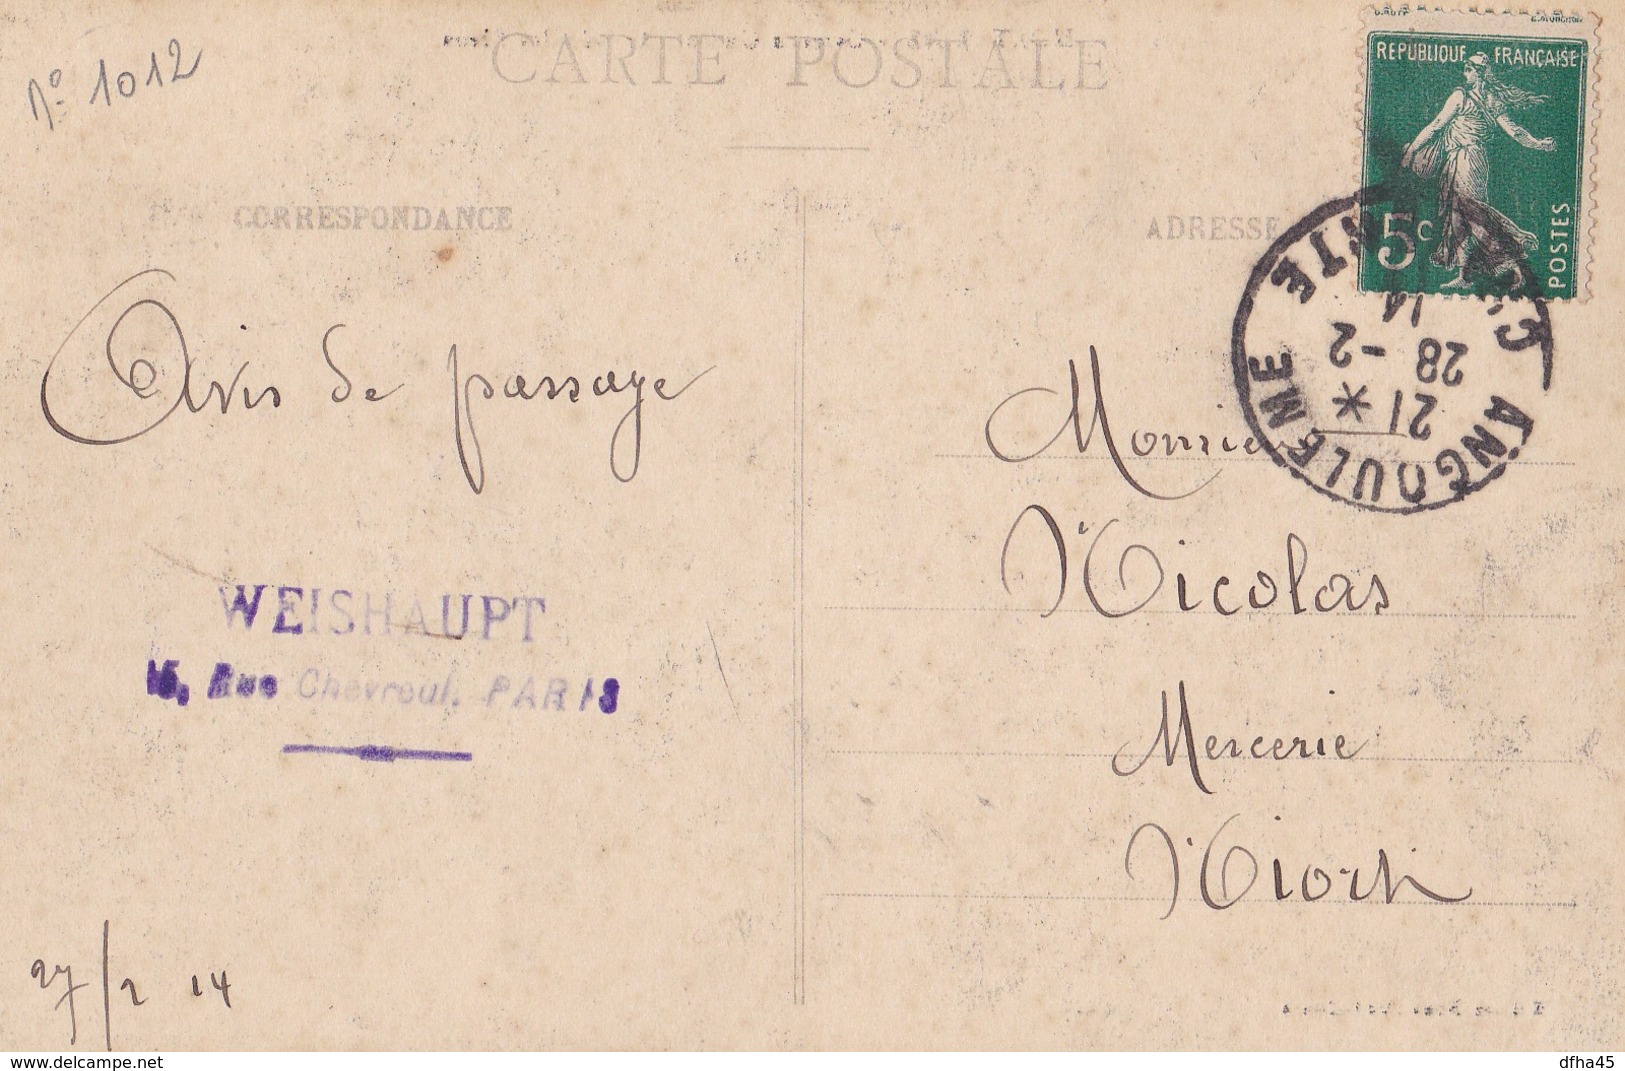 No 1012
CARTE POSTALE
RÉPUBLIQUE FRANÇAISE
5c POSTES
CORRESPONDANCE
ADRESSE
ANGOULEME
21 *
28 - 2
14
Avis de passage
Monsieur
Nicolas
WEISHAUPT
15, Rue Chevreul, PARIS
Mercerie
Niort
27/2 14
www.delcampe.net
dfha45